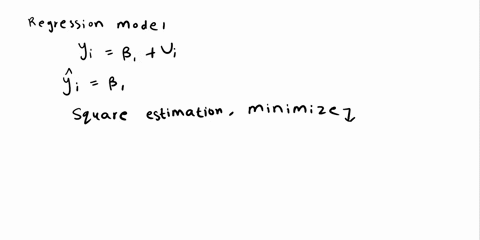 Regression model,
yᵢ = β₁ + Uᵢ
ŷᵢ = β₁
Square estimation, minimize